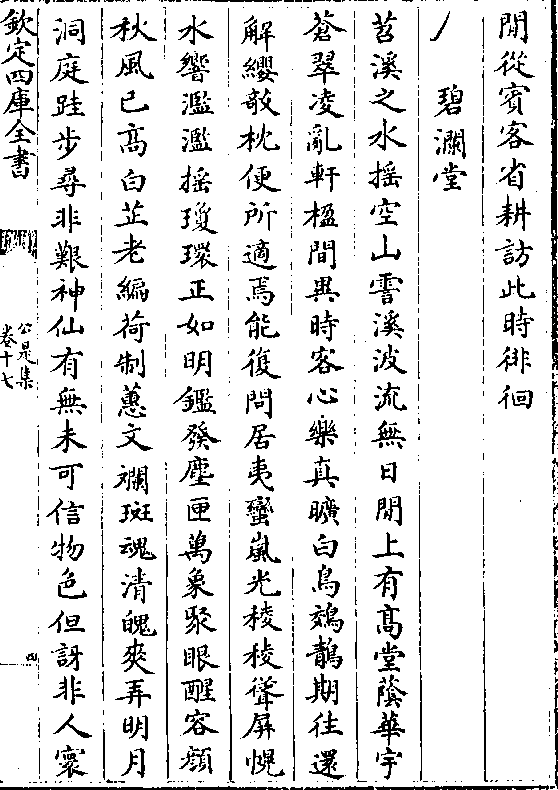 閒從賓客省耕訪此時徘徊
碧瀾堂
苕溪之水揺空山霅溪波流無日閒上有髙堂蔭華宇
蒼翠凌亂軒楹間異時客心樂真曠白鳥鵁鶄期往還
解纓欹枕便所適焉能復問居夷蠻嵐光稜稜聳屏幌
水響濫濫揺瓊環正如明鑑發塵匣萬象聚眼醒容顔
秋風已髙白芷老編荷制蕙文斕斑魂清魄爽弄明月
洞庭跬步尋非艱神仙有無未可信物色但訝非人寰
欽定四庫全書
公是集
卷十七
四